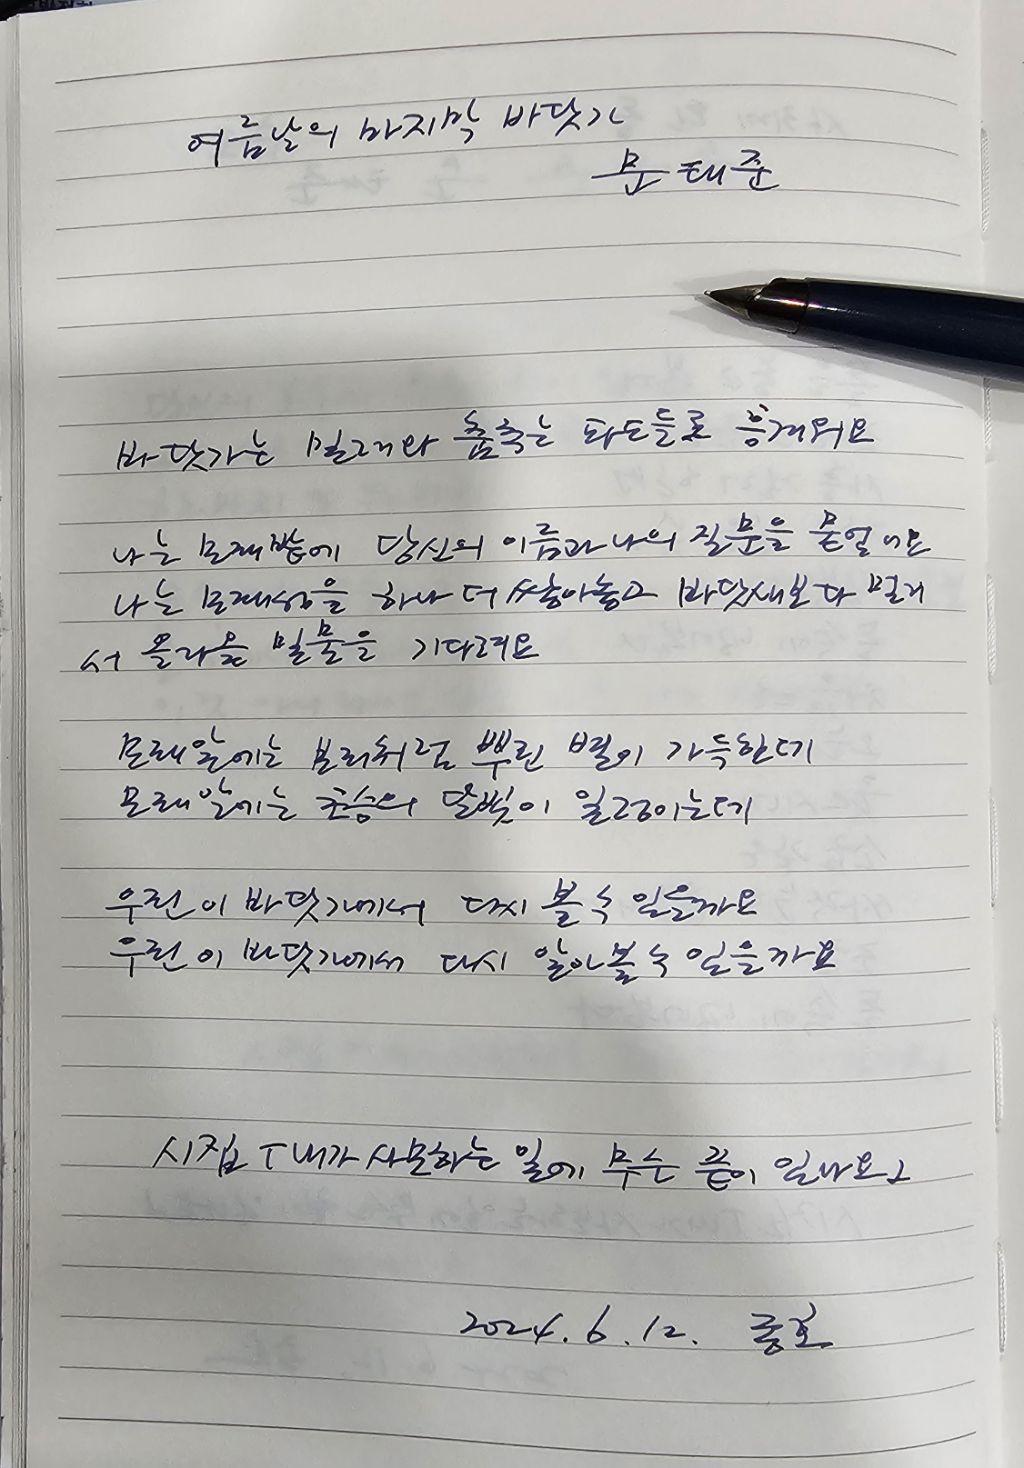 여름날의 마지막 바닷가
문태준
바닷가는 밀려와 춤추는 파도들로 흥겨워요
나는 모래밭에 당신의 이름과 나의 질문을 묻었어요
나는 모래성을 하나 더 쌓아놓고 바닷새보다 멀리
서 올라올 밀물을 기다려요
모래알에는 보리처럼 뿌린 별이 가득한데
모래알에는 초승의 달빛이 일렁이는데
우린 이 바닷가에서 다시 볼 수 있을까요
우린 이 바닷가에서 다시 알아볼 수 있을까요
시집 「내가 사모하는 일에 무슨 끝이 있나요」
2024. 6. 12. 종호